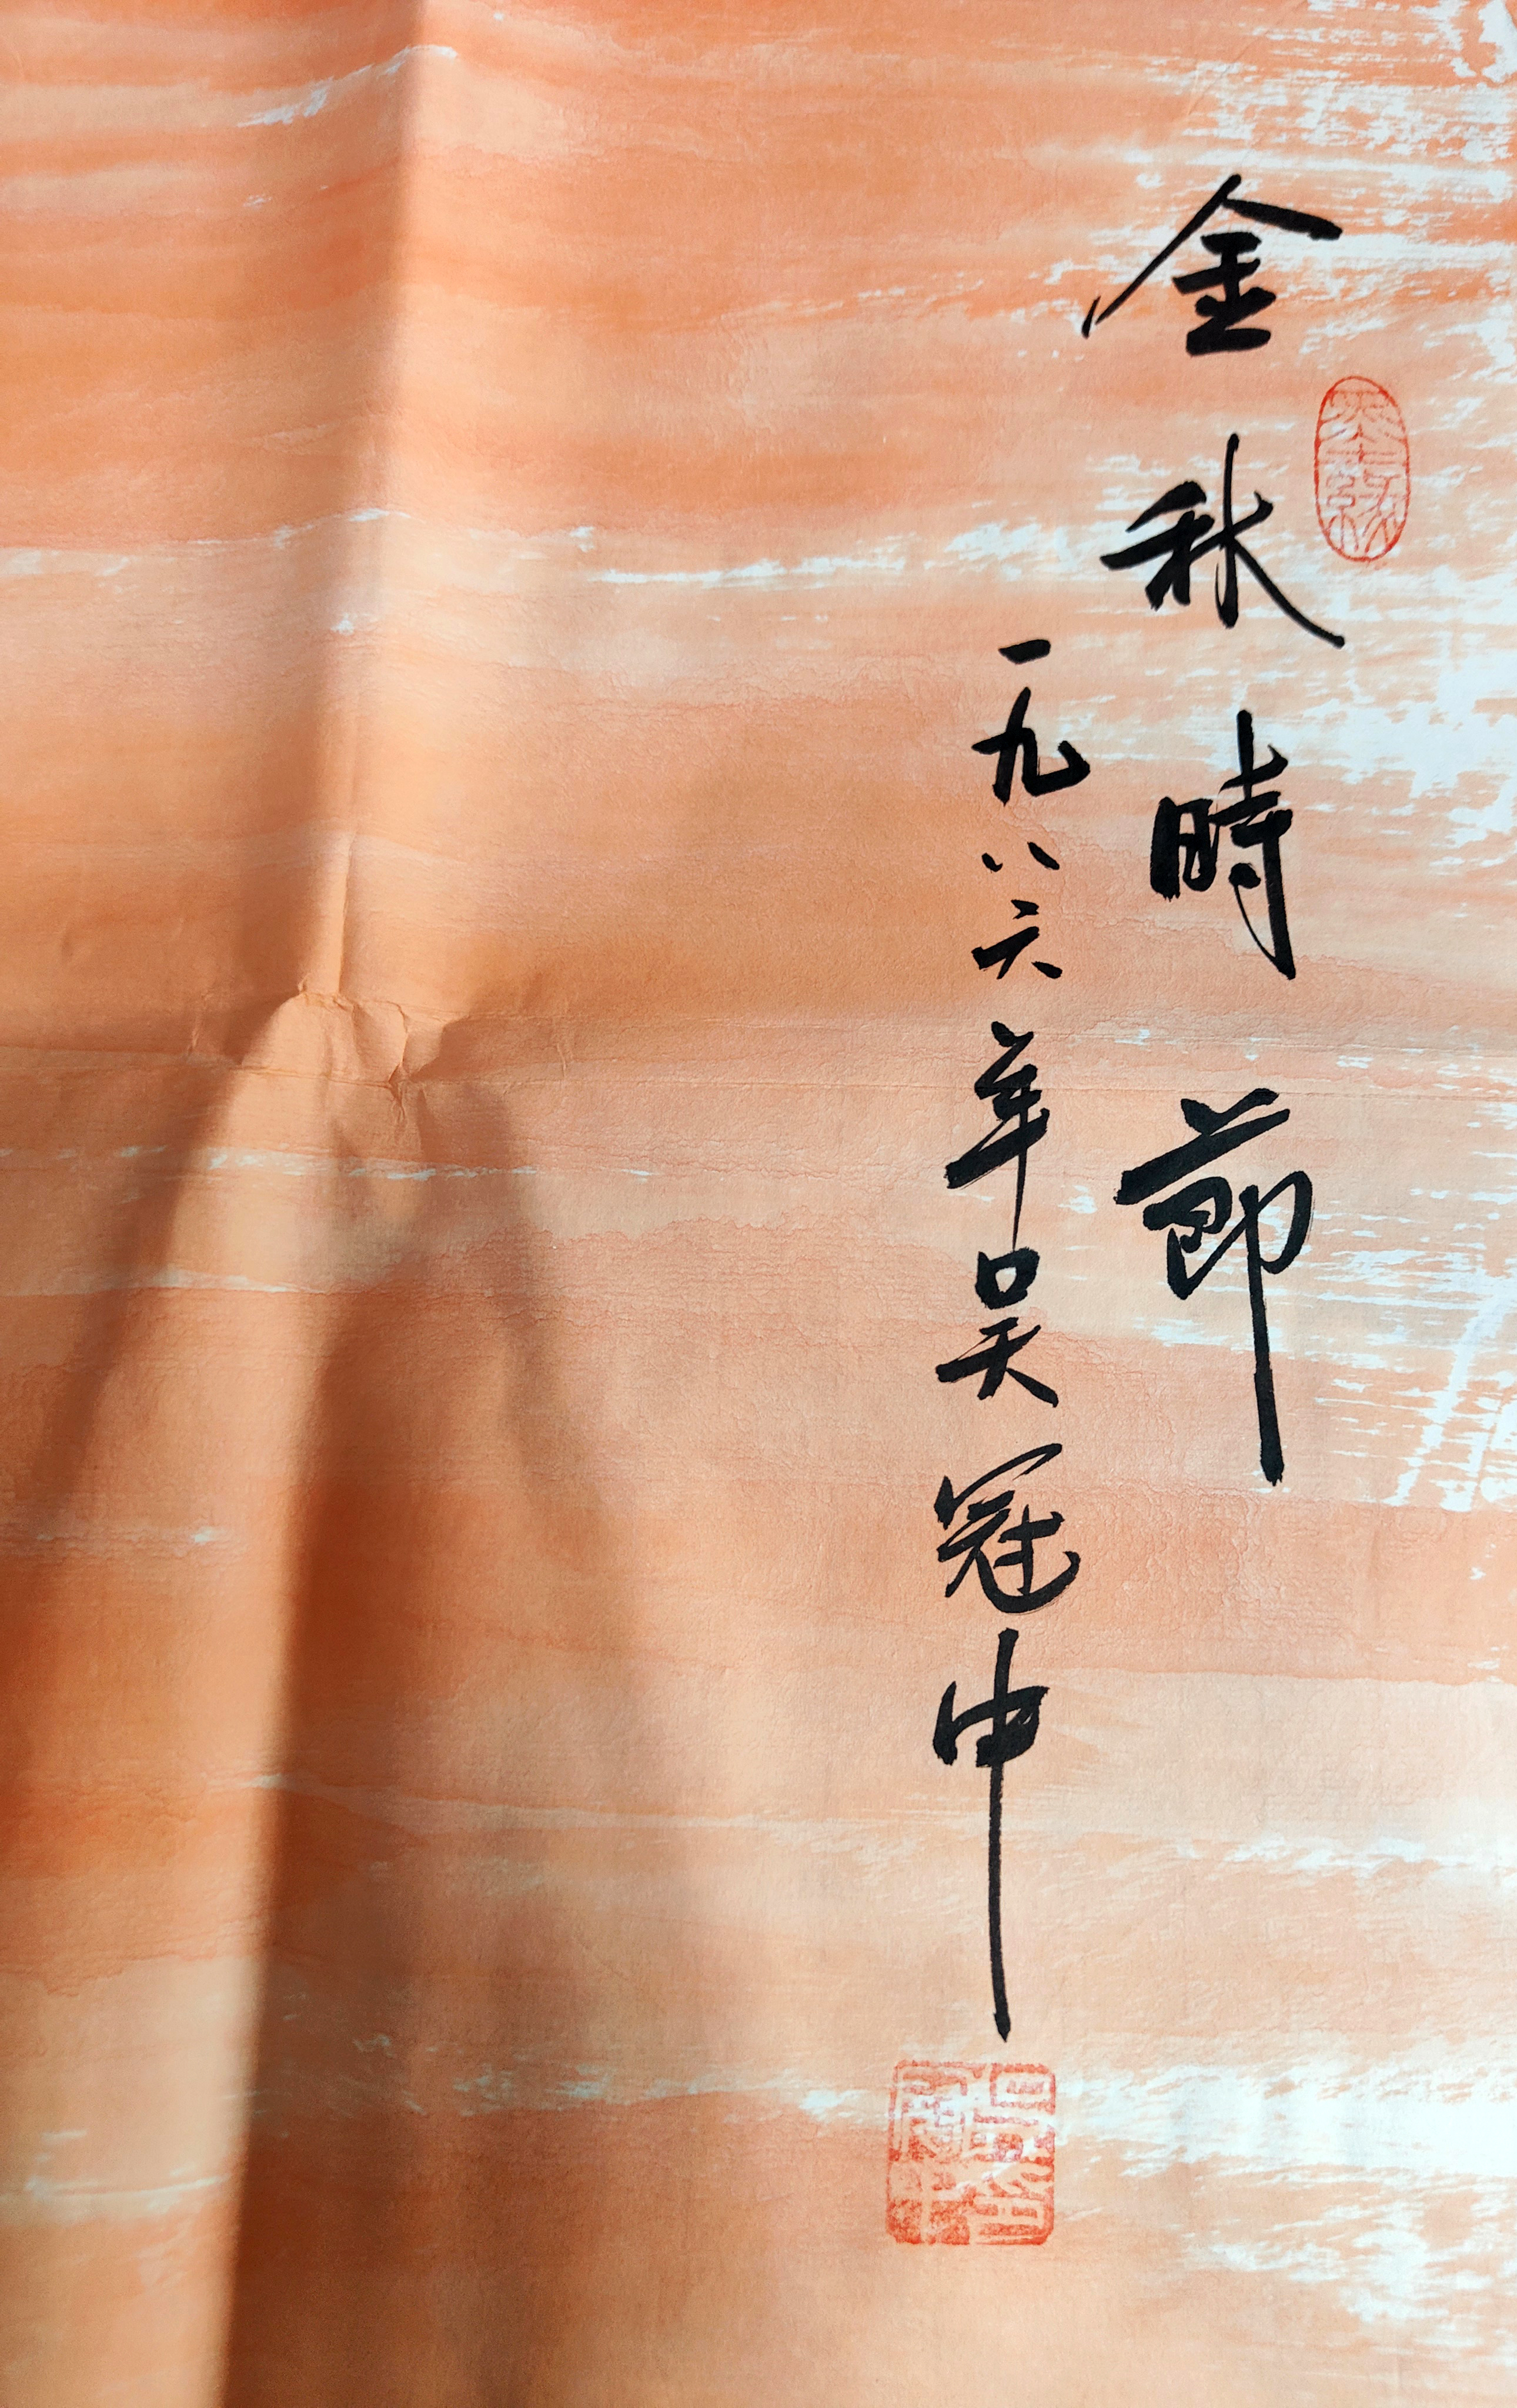 金秋時節
一九八六年吴冠中